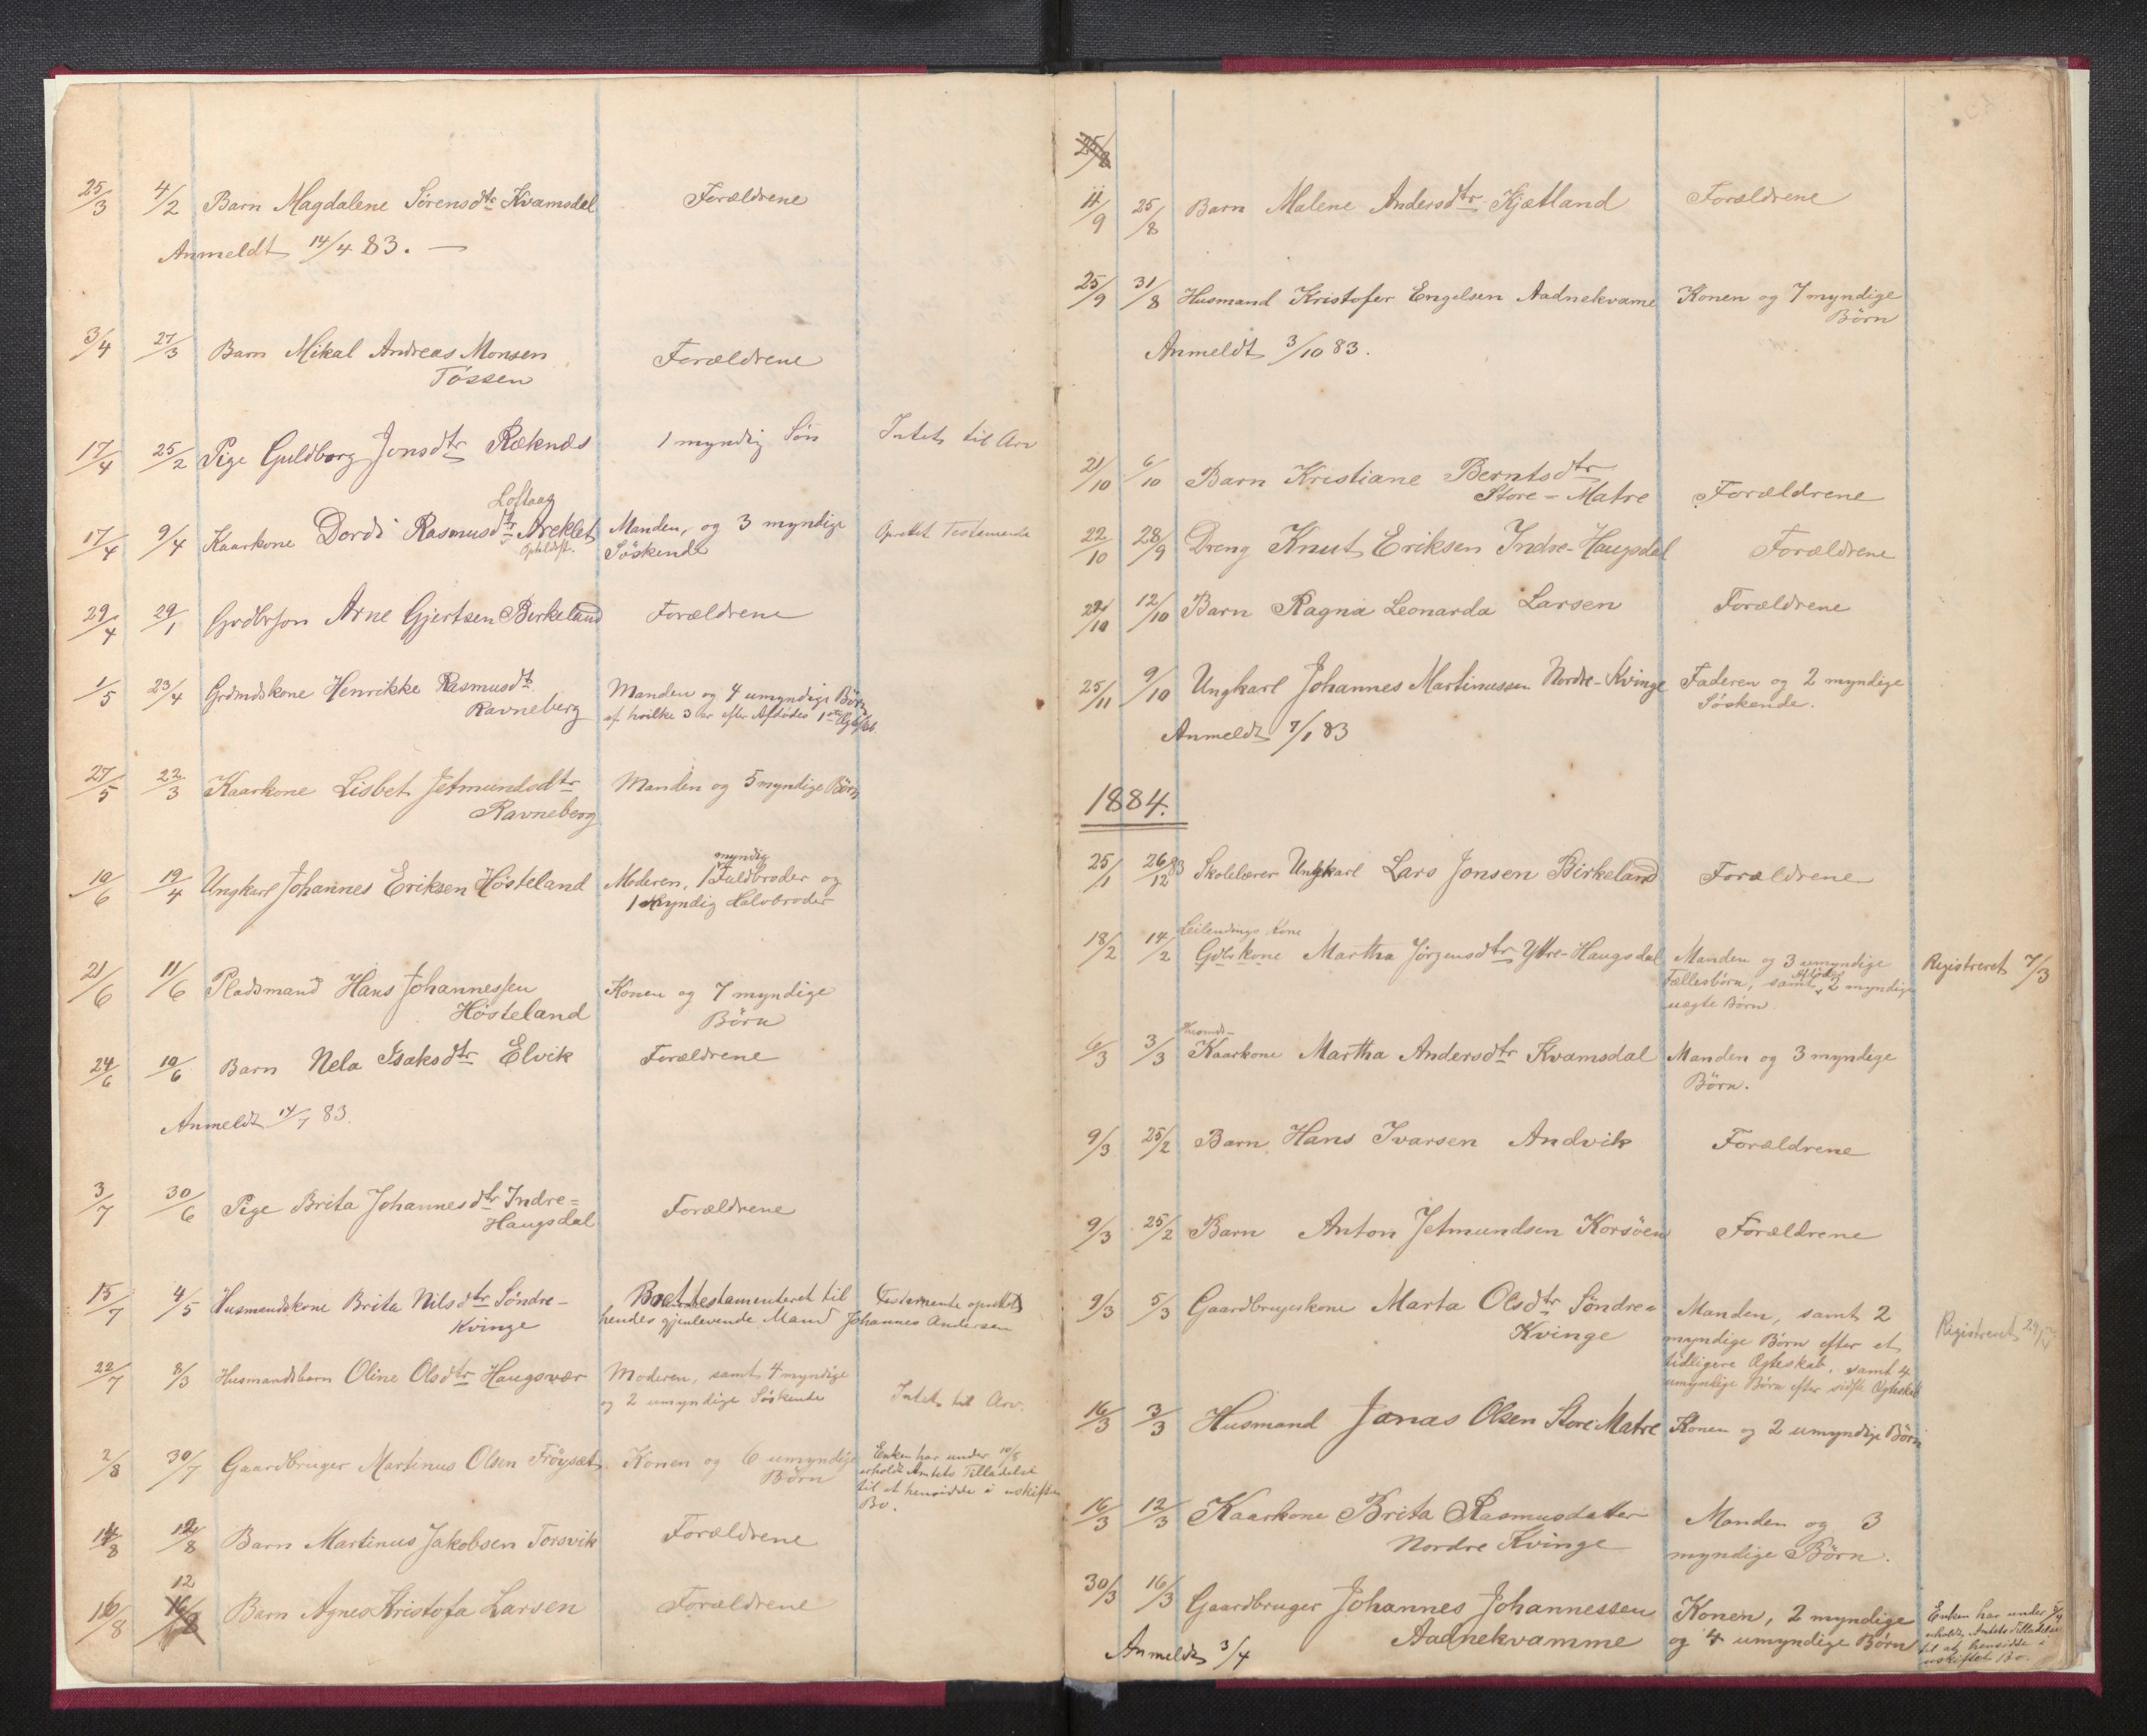 25/3 4/2 Barn Magdalene Sørensdtr Kvamsdal Forældrene
Anmeldt 14/4 83. —
3/4 27/3 Barn Mikal Andreas Monsen Forældrene
Tøssen
17/4 25/2 Pige Guldborg Jonsdtr Røknæs 1 myndig Søn Intet til Arv
Loftaag
17/4 9/4 Kaarkone Dordi Rasmusdtr Areklet Manden, og 3 myndige Oprettet Testamente
Søskende
29/4 29/1 Grdbrson Arne Gjertsen Birkeland Forældrene
1/5 23/4 Grdmdskone Henrikke Rasmusdt Manden og 4 umyndige Børn
Ravneberg af hvilke 3 er efter Afdødes 1ste Ægtesk.
27/5 22/3 Kaarkone Lisbet Jetmundsdtr Manden og 5 myndige Børn
Ravneberg
myndig
10/6 19/4 Ungkarl Johannes Eriksen Høsteland Moderen, 1 Fuldbroder og
1 myndig Halvbroder
21/6 11/6 Pladsmand Hans Johannessen Konen og 7 myndige
Høsteland Børn
24/6 10/6 Barn Nela Isaksdtr Elvik Forældrene
Anmeldt 14/7 83.
3/7 30/6 Pige Brita Johannesdtr Indre= Forældrene
Haugsdal
15/7 4/5 Husmandskone Brita Nilsdtr Søndre- Boet testamenteret til Testamente oprettet
Kvinge hendes gjenlevende Mand Johannes Andersen
22/7 8/3 Husmandsbarn Oline Olsdtr Haugsvær Moderen, samt 4 myndige
og 2 umyndige Søskende Intet til Arv.
2/8 30/7 Gaardbruger Martinus Olsen Frøyset Konen og 6 umyndige Enken har under 10/8
Børn erholdt Amtets Tilladelse
til at hensidde i uskiftet
Bo.
14/8 12/8 Barn Martinus Jakobsen Torsvik Forældrene
12
16/8 16/8 Barn Agnes Kristofa Larsen Forældrene
25/8
11/9 25/8 Barn Malene Andersdtr Kjetland Forældrene
25/9 31/8 Husmand Kristofer Engelsen Aadnekvame Konen og 7 myndige
Børn
Anmeldt 3/10 83.
21/10 6/10 Barn Kristiane Berntsdtr
Store-Matre Forældrene
22/10 28/9 Dreng Knut Eriksen Indre-Haugsdal Forældrene
22/10 12/10 Barn Ragna Leonarda Larsen Forældrene
25/11 9/10 Ungkarl Johannes Martinussen Nordre-Kvinge Faderen og 2 myndige
Søskende.
Anmeldt 7/1 83
1884.
25/1 26/12 83 Skolelærer Ungkarl Lars Jonsen Birkeland Forældrene
Leilendings Kone
18/2 14/2 Gdbskone Martha Jørgensdtr Yttre-Haugsdal Manden og 3 umyndige Registreret 7/3
Fællesbørn, samt Afdødes 2 myndige
uægte Børn
Husmds-
6/3 3/3 Kaarkone Martha Andersdtr Kvamsdal Manden og 3 myndige
Børn.
9/3 25/2 Barn Hans Ivarsen Andvik Forældrene
9/3 25/2 Barn Anton Jetmundsen Korsøen Forældrene
9/3 5/3 Gaardbrugerskone Marta Olsdtr Søndre= Manden, samt 2
Kvinge myndige Børn efter et Registreret
tidligere Ægteskab, samt 4
umyndige Børn efter sidste Ægteskab
16/3 3/3 Husmand Jonas Olsen Store Matre Konen og 2 umyndige Børn
16/3 12/3 Kaarkone Brita Rasmusdatter Manden og 3
Nordre Kvinge myndige Børn.
30/3 16/3 Gaardbruger Johannes Johannessen Konen, 2 myndige Enken har under
Aadnekvamme og 4 umyndige Børn erholdt Amtets Tilladelse
til at hensidde i
uskiftet Bo.
Anmeldt 3/4